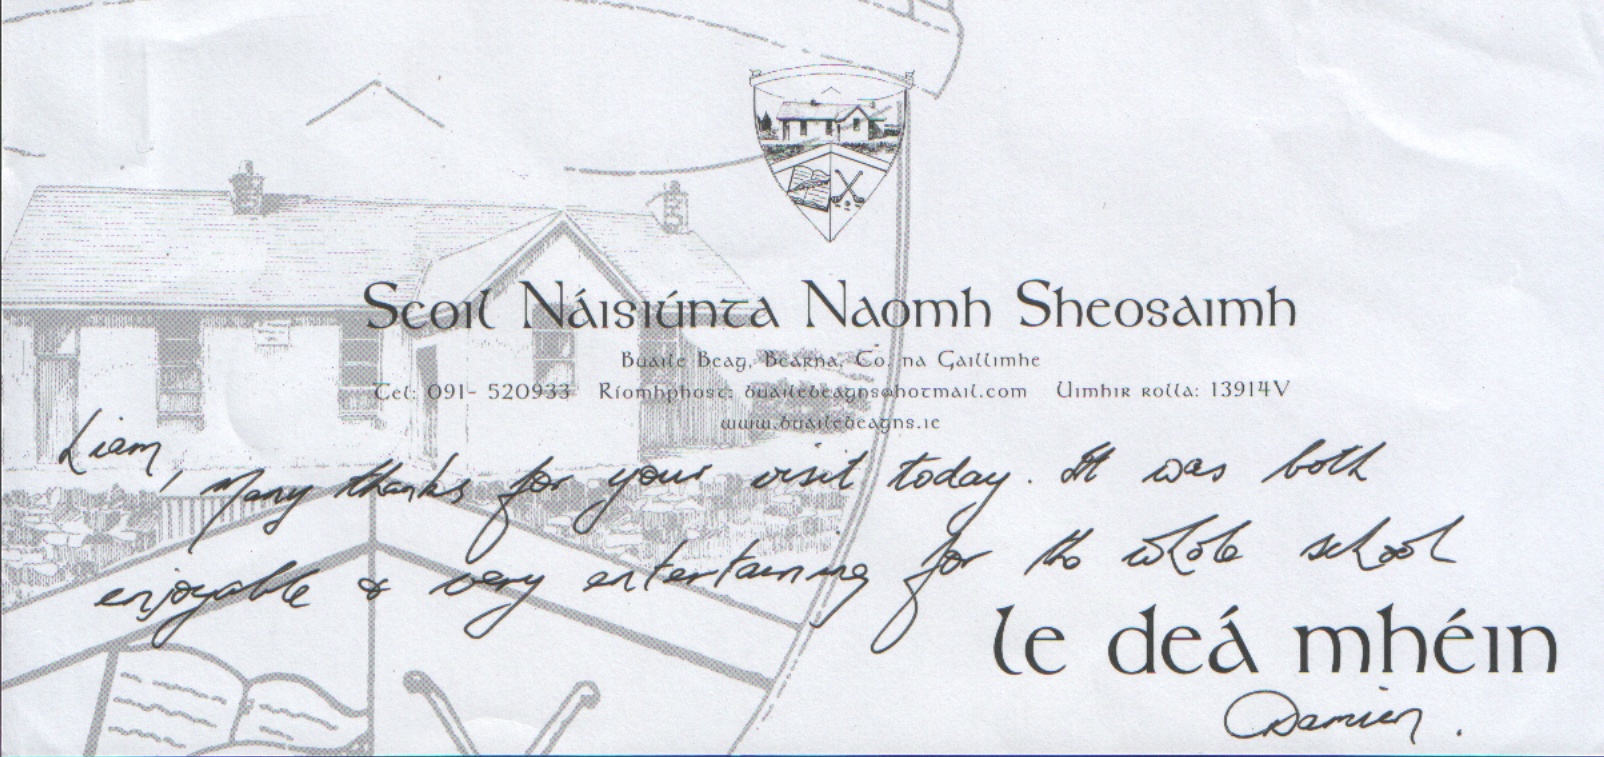 Scoil Náisiúnta Naomh Sheosaimh
Buaile Beag, Bearna, Co. na Gaillimhe
Tel: 091- 520933 Ríomhphost: buailebeagns@hotmail.com Uimhir rolla: 13914V
www.buailebeagns.ie
Liam,
Many thanks for your visit today. It was both
enjoyable & very entertaining for the whole school
le deá mhéin
Damien.